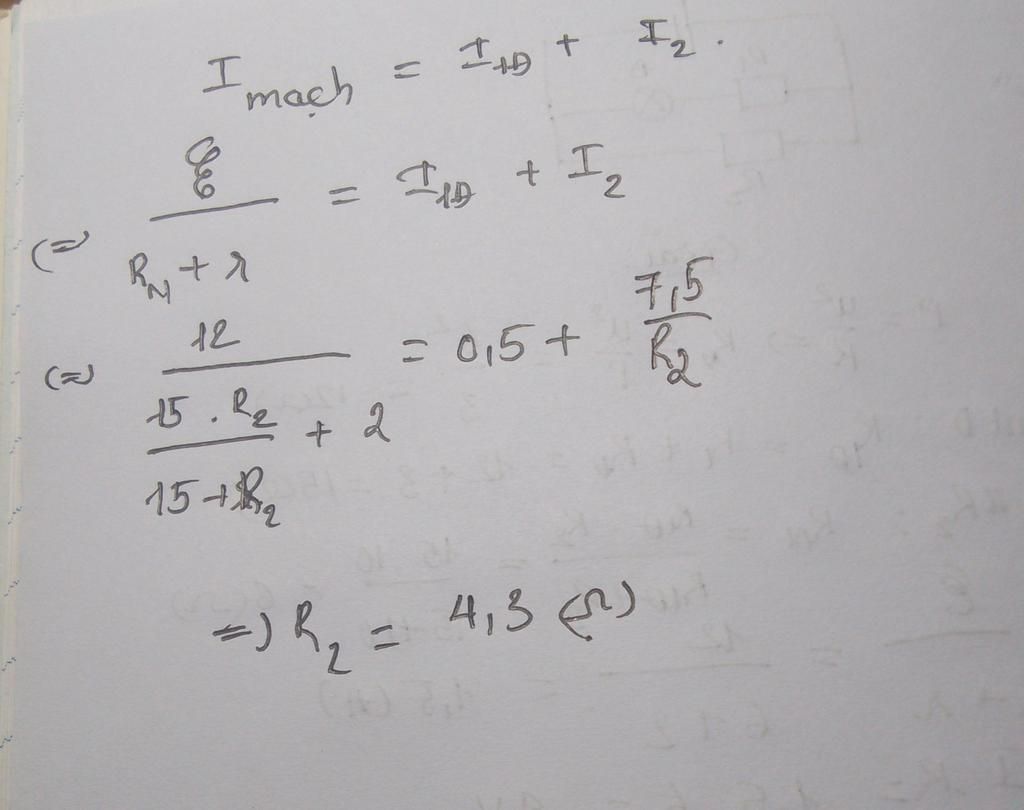 I mạch = I1Đ + I2.
(=) ℰ / (RN + r) = I1Đ + I2
(=) 12 / (15 . R2 / (15 + R2) + 2) = 0,5 + 7,5 / R2
=) R2 = 4,3 (Ω)